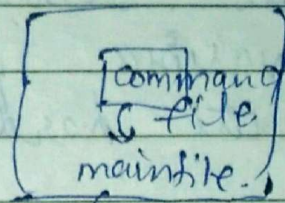 command
file
mainfile.